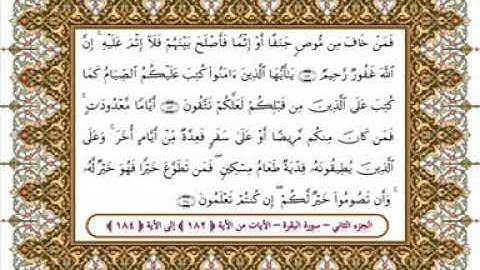 فَمَنْ خَافَ مِن مُّوصٍ جَنَفًا أَوْ إِثْمًا فَأَصْلَحَ بَيْنَهُمْ فَلَآ إِثْمَ عَلَيْهِ ۚ إِنَّ
ٱللَّهَ غَفُورٌ رَّحِيمٌ ﴿١٨٢﴾ يَـٰٓأَيُّهَا ٱلَّذِينَ ءَامَنُوا۟ كُتِبَ عَلَيْكُمُ ٱلصِّيَامُ كَمَا
كُتِبَ عَلَى ٱلَّذِينَ مِن قَبْلِكُمْ لَعَلَّكُمْ تَتَّقُونَ ﴿١٨٣﴾ أَيَّامًا مَّعْدُودَٰتٍ ۚ
فَمَن كَانَ مِنكُم مَّرِيضًا أَوْ عَلَىٰ سَفَرٍ فَعِدَّةٌ مِّنْ أَيَّامٍ أُخَرَ ۚ وَعَلَى
ٱلَّذِينَ يُطِيقُونَهُۥ فِدْيَةٌ طَعَامُ مِسْكِينٍ ۖ فَمَن تَطَوَّعَ خَيْرًا فَهُوَ خَيْرٌ لَّهُۥ
ۚ وَأَن تَصُومُوا۟ خَيْرٌ لَّكُمْ ۖ إِن كُنتُمْ تَعْلَمُونَ ﴿١٨٤﴾
الجزء الثاني – سورة البقرة – الآيات من الآية ﴿١٨٢﴾ إلى الآية ﴿١٨٤﴾